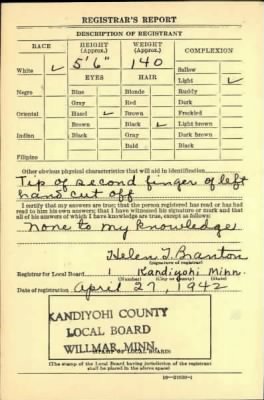 REGISTRAR'S REPORT
DESCRIPTION OF REGISTRANT
RACE HEIGHT (Approx.) WEIGHT (Approx.) COMPLEXION
5'6" 140 Sallow
White ✓ EYES HAIR Light ✓
Negro Blue Blonde Ruddy
Gray Red Dark
Oriental Hazel ✓ Brown Freckled
Brown Black ✓ Light brown
Indian Black Gray Dark brown
Bald Black
Filipino
Other obvious physical characteristics that will aid in identification
Tip of second finger of left
hand cut off
I certify that my answers are true; that the person registered has read or has had
read to him his own answers; that I have witnessed his signature or mark and that
all of his answers of which I have knowledge are true, except as follows:
None to my knowledge
Helen T. Branton
(Signature of registrar)
Registrar for Local Board 1 Kandiyohi Minn.
(Number) (City or county) (State)
Date of registration April 27, 1942
KANDIYOHI COUNTY
LOCAL BOARD
WILLMAR, MINN.
(STAMP OF LOCAL BOARD)
(The stamp of the Local Board having jurisdiction of the registrant
shall be placed in the above space)